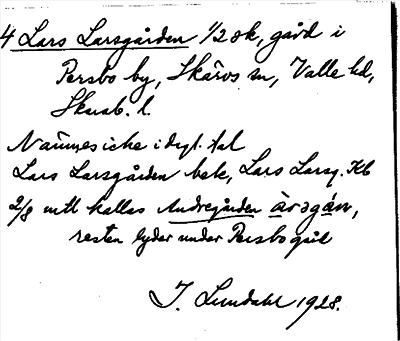 4 Lars Larsgården 1/2 sk, gård i
Persbo by, Skärvs sn, Valle hd,
Skarab. l.
Nämnes icke i dagl. tal
Lars Larsgården bek, Lars Larsg. Kb
2/8 mtl kallas Andregården àrəgán,
resten lyder under Persbo gård
J. Lundahl 1928.